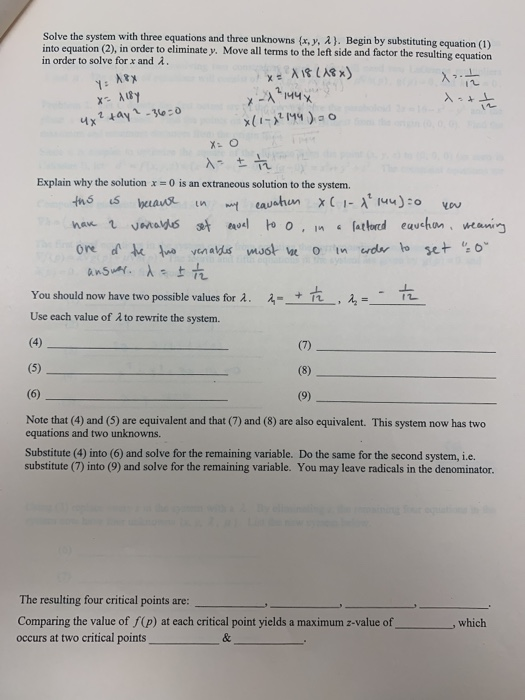 Solve the system with three equations and three unknowns {x, y, λ}. Begin by substituting equation (1)
into equation (2), in order to eliminate y. Move all terms to the left side and factor the resulting equation
in order to solve for x and λ.
y = λ8x
x = λ18y
4x² + 9y² - 36 = 0
x = λ18(λ8x)
x - λ²144x
x(1-λ²144) = 0
x = 0
λ = ± 1/12
λ = - 1/12
λ = + 1/12
Explain why the solution x = 0 is an extraneous solution to the system.
this is because in my equation x(1-λ²144)=0 you
have 2 variables set equal to 0, in a factored equation, meaning
one of the two variables must be 0 in order to set "=0"
answer. λ = ± 1/12
You should now have two possible values for λ. λ₁= + 1/12 , λ₂ = - 1/12
Use each value of λ to rewrite the system.
(4) (7)
(5) (8)
(6) (9)
Note that (4) and (5) are equivalent and that (7) and (8) are also equivalent. This system now has two
equations and two unknowns.
Substitute (4) into (6) and solve for the remaining variable. Do the same for the second system, i.e.
substitute (7) into (9) and solve for the remaining variable. You may leave radicals in the denominator.
The resulting four critical points are: , , , .
Comparing the value of f(p) at each critical point yields a maximum z-value of , which
occurs at two critical points & .